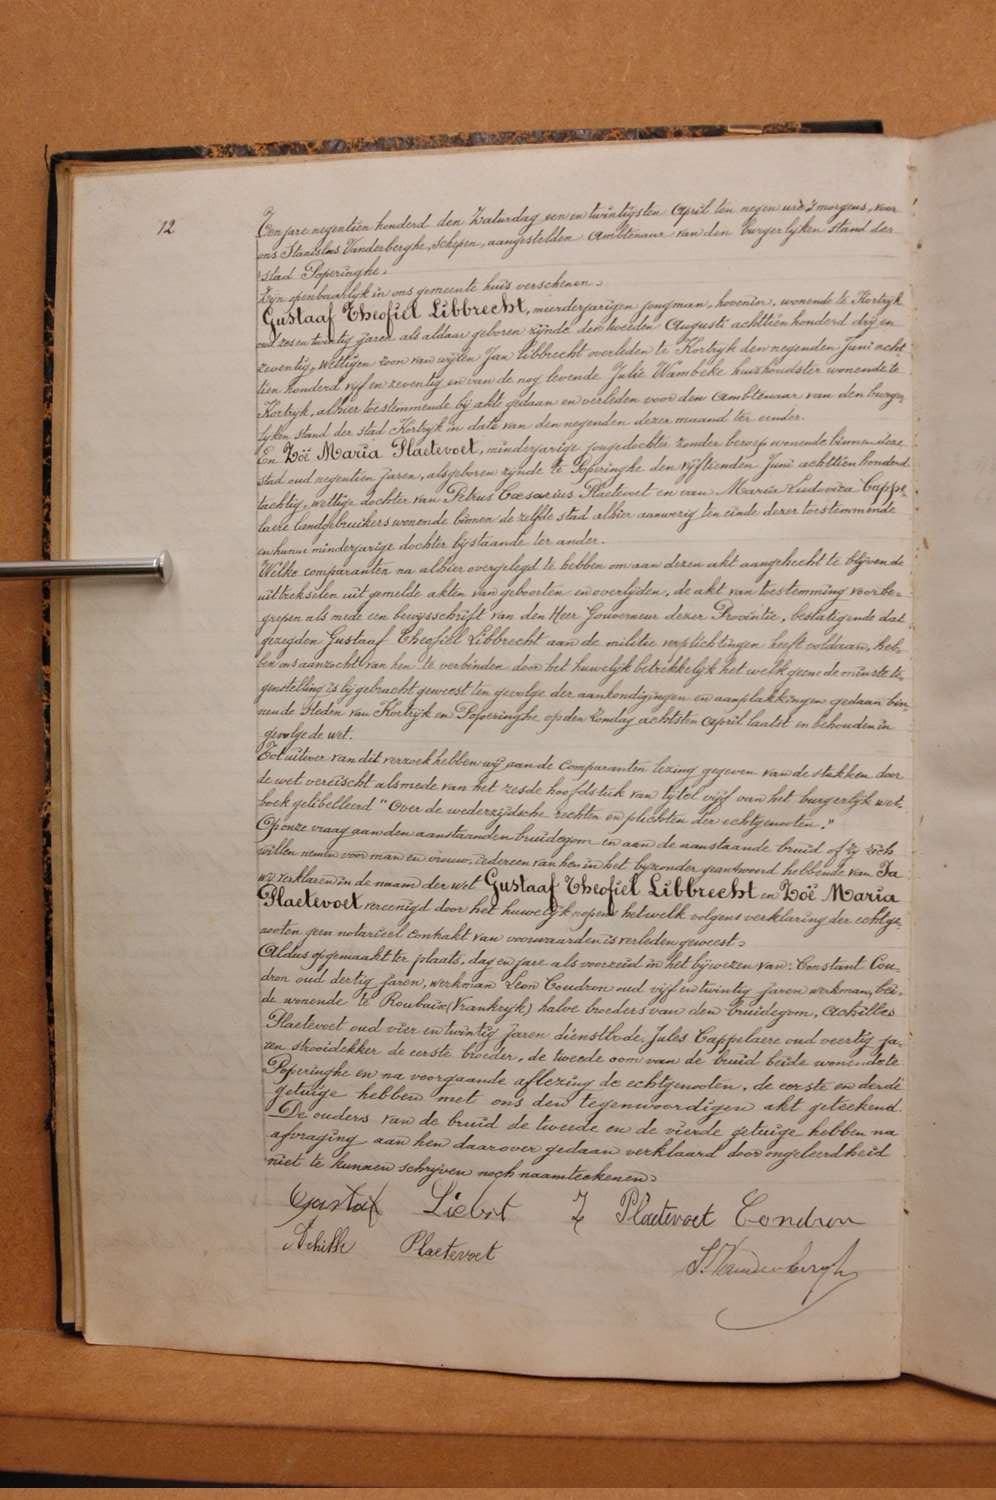 12
Ten jare negentien honderd den Zaturdag een en twintigsten April ten negen ure 's morgens, voor
ons Stanislas Vanderberghe, schepen, aangestelden Ambtenaar van den burgerlyken stand der
stad Poperinghe.
Zyn openbaarlyk in ons gemeente huis verschenen.
Gustaaf Theofiel Libbrecht, meerderjarigen jongman, hovenier, wonende te Kortryk
oud zes en twintig jaren als aldaar geboren zynde den tweeden Augusti achttien honderd dry en
zeventig, wettigen zoon van wylen Jan Libbrecht overleden te Kortryk den negenden Juni acht
tien honderd vyf en zeventig en van de nog levende Julie Wambeke huishoudster wonende te
Kortryk, alhier toestemmende by akte gedaan en verleden voor den Ambtenaar van den burger-
lyken stand der stad Kortryk in date van den negenden dezer maand ter eender.
En Zoë Maria Plaetevoet, minderjarige jongedochter zonder beroep wonende binnen deze
stad oud negentien jaren, als geboren zynde te Poperinghe den vyftienden Juni achttien honderd
tachtig, wettige dochter van Petrus Cæsarius Plaetevoet en van Maria Ludovica Cappe-
laere landgebruikers wonende binnen de zelfde stad alhier aanwezig ten einde dezer toestemmende
en hunne minderjarige dochter bystaande ter ander.
Welke comparanten na alhier overgelegd te hebben om aan dezen akt aangehecht te blyven de
uittrekselen uit gemelde akten van geboorten en overlyden, de akt van toestemming voorbe-
grepen als mede een bewysschrift van den Heer Gouverneur dezer Provintie, bestatigende dat
gezegden Gustaaf Theofiel Libbrecht aan de militie verplichtingen heeft voldaan, heb-
ben ons aanzocht van hen te verbinden door het huwelyk betrekkelyk het welk geene de minste te-
genstelling is bygebracht geweest ten gevolge der aankondigingen en aanplakkingen gedaan bin-
nen de steden van Kortryk en Poperinghe op den Zondag achtsten April laatst en behouden in
gevolge de wet.
Tot uitvoer van dit verzoek hebben wy aan de Comparanten lezing gegeven van de stukken door
de wet vereischt alsmede van het zesde hoofdstuk van tytel vyf van het burgerlyk wet-
boek gelibelleerd "Over de wederzydsche rechten en plichten der echtgenooten."
Op onze vraag aan den aanstaanden bruidegom en aan de aanstaande bruid of zy zich
willen nemen voor man en vrouw, iedereen van hen in het byzonder geantwoord hebbende van Ja
wy verklaren in de naam der wet Gustaaf Theofiel Libbrecht en Zoë Maria
Plaetevoet vereenigd door het huwelyk nopens hetwelk volgens verklaring der echtge-
nooten geen notarieel contrakt van voorwaarden is verleden geweest.
Aldus opgemaakt ter plaats, dag en jare als voorzeid in het bywezen van: Constant Cou-
dron oud dertig jaren, werkman Leon Coudron oud vyf en twintig jaren werkman, bei-
de wonende te Roubaix (Vrankryk) halve broeders van den bruidegom, Achilles
Plaetevoet oud vier en twintig jaren dienstbode, Jules Cappelaere oud veertig ja-
ren strooidekker de eerste broeder, de tweede oom van de bruid beide wonende te
Poperinghe en na voorgaande aflezing de echtgenooten, de eerste en derde
getuige hebben met ons den tegenwoordigen akt geteekend.
De ouders van de bruid de tweede en de vierde getuige hebben na
afvraging aan hen daarover gedaan verklaard door ongeleerdheid
niet te kunnen schryven noch naamteekenen.
Gustaf Liebrt Z Plaetevoet Condron
Achille Plaetevoet
S. Vanderberghe